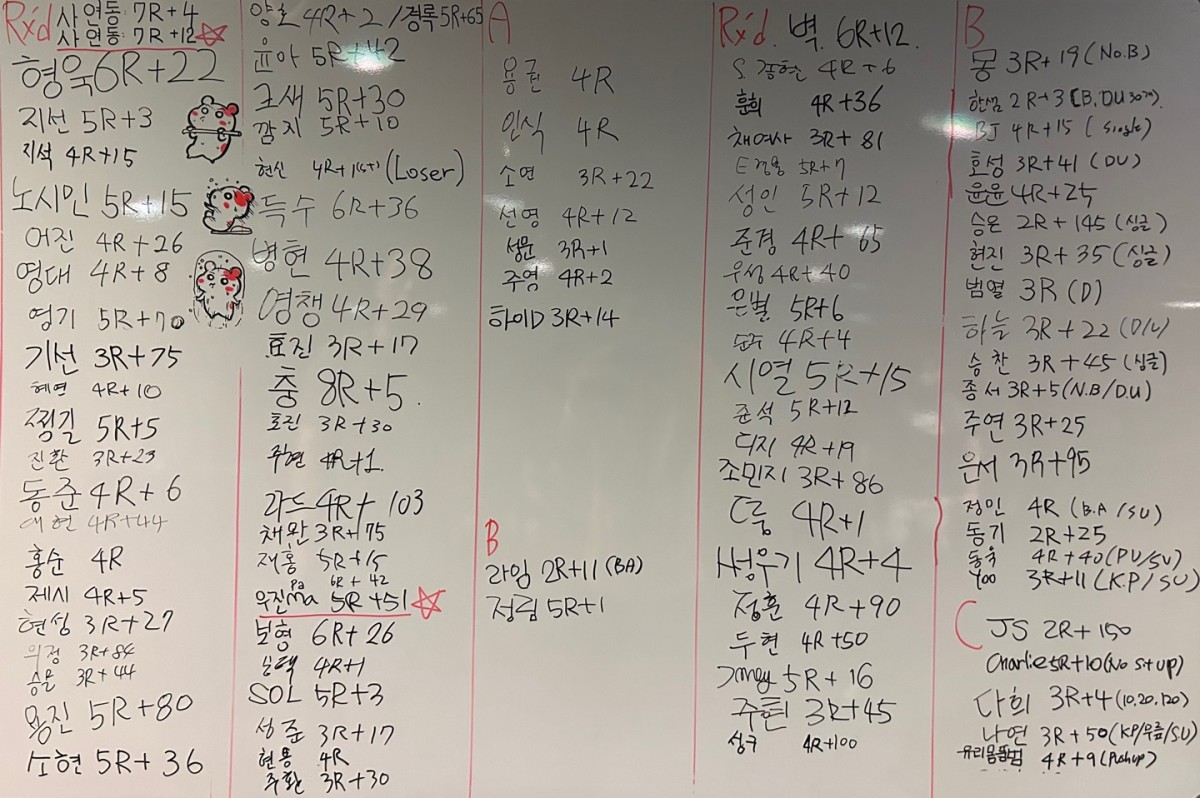 Rx'd
사연동 7R+4
사연동 7R+12
형욱 6R+22
지선 5R+3
지석 4R+15
노시민 5R+15
어진 4R+26
영대 4R+8
영기 5R+70
기선 3R+75
혜연 4R+10
찡길 5R+5
진환 3R+23
동준 4R+6
대현 4R+44
홍순 4R
제시 4R+5
현성 3R+27
의정 3R+84
승윤 3R+44
용진 5R+80
소현 5R+36
4R+2 / 정록 5R+65
윤아 5R+42
크새 5R+30
깜지 5R+10
현신 (Loser)
득수 6R+36
병현 4R+38
영챙 4R+29
효진 3R+17
춤 8R+5.
효진 3R+30
주현 4R+1.
라드 4R+103
채완 3R+75
재홍 5R+15
Pa 6R+42
우진 ma 5R+51
보형 6R+26
4R+1
SOL 5R+3
성준 3R+17
현용 4R
주환 3R+30
A
용권 4R
인식 4R
소연 3R+22
선영 4R+12
성윤 3R+1
주영 4R+2
하이D 3R+14
B
라임 2R+11 (BA)
정림 5R+1
Rx'd. 벽. 6R+12.
S. 강현 4R+6
훈희 4R+36
채여사 3R+81
E 경용 5R+7
성인 5R+12
준경 4R+65
우성 4R+40
은별 5R+6
순주 4R+4
시열 5R+15
준석 5R+12
디지 4R+19
조민지 3R+86
C룽 4R+1
H성우기 4R+4
정훈 4R+90
두현 4R+50
Jimmy 5R+16
주현 3R+45
싱쿠 4R+100
B
몽 3R+19 (No.B)
한샘 2R+3 (B.DU 30개).
BJ 4R+15 (Single)
효성 3R+41 (DU)
윤윤 4R+25
승은 2R+145 (싱글)
현진 3R+35 (싱글)
범열 3R (D)
하늘 3R+22 (D/U)
승찬 3R+45 (싱글)
종서 3R+5 (N.B/D.U)
주연 3R+25
운서 3R+95
정인 4R (B.A/SU)
동기 2R+25
동욱 4R+40 (PU/SU)
Yoo 3R+11 (KP/SU)
C
JS 2R+150
Charlie 5R+10 (No sit up)
다희 3R+4 (10.20.120)
나연 3R+50 (KP/무릎/SU)
4R+9 (Push up)